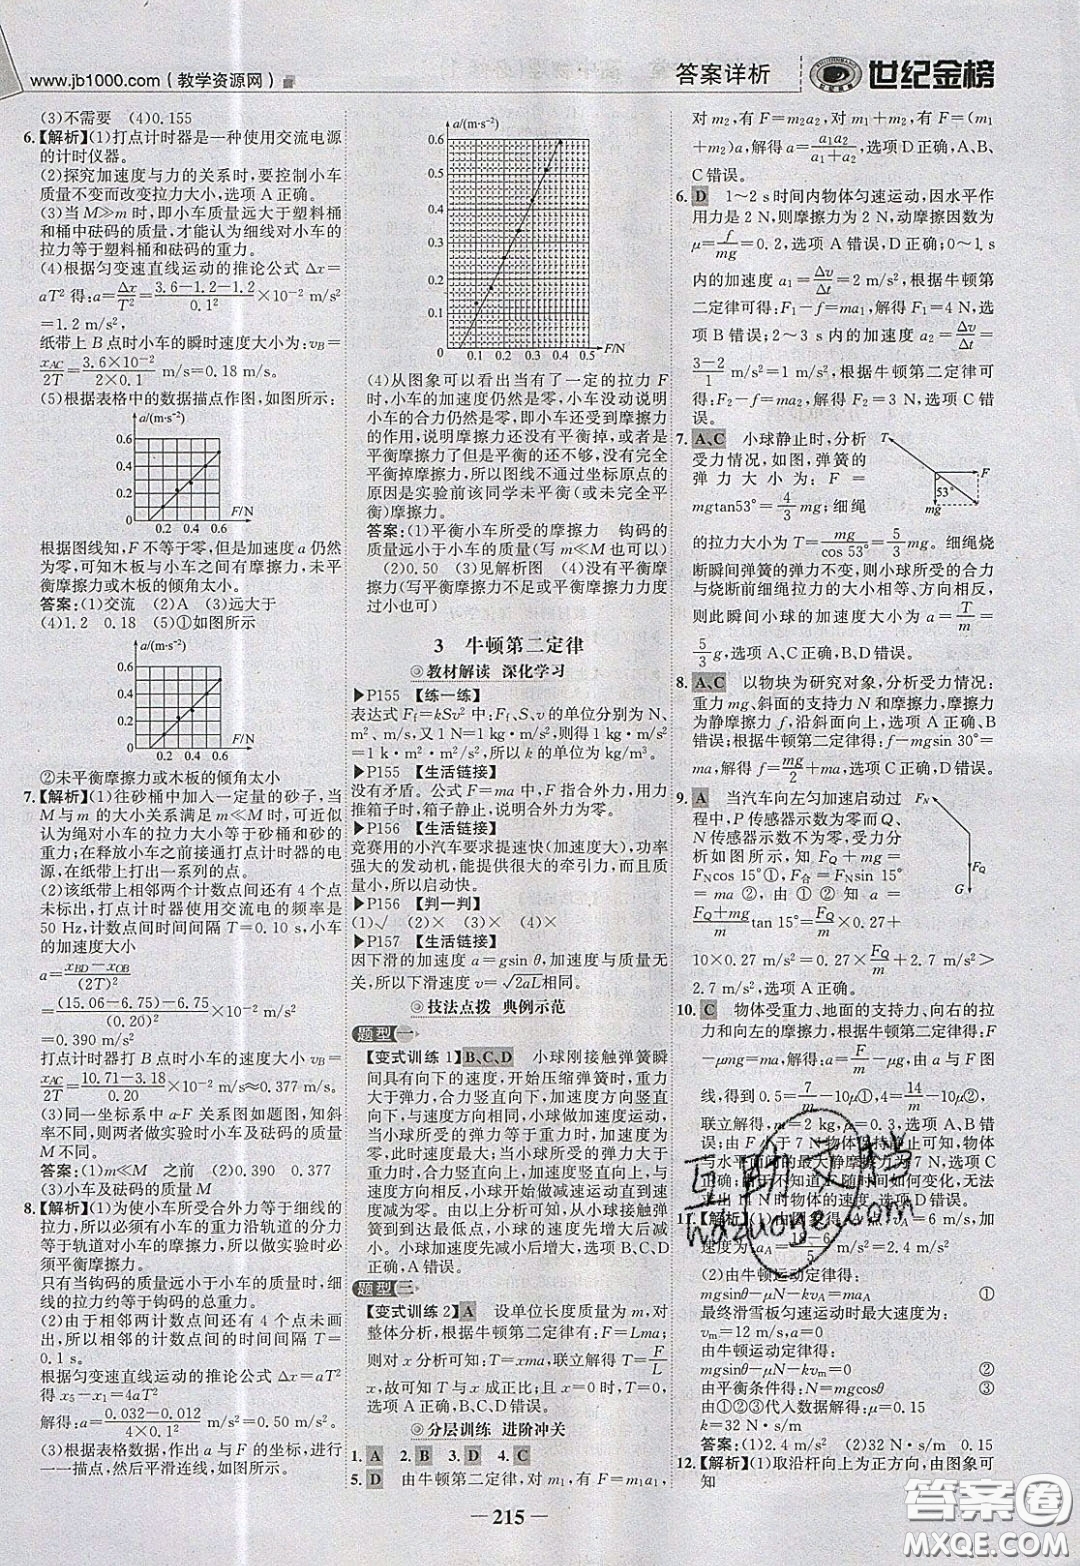 www.jb1000.com(教学资源网)
答案详析
世纪金榜
(3)不需要 (4)0.155
6.【解析】(1)打点计时器是一种使用交流电源
的计时仪器。
(2)探究加速度与力的关系时,要控制小车
质量不变而改变拉力大小,选项 A 正确。
(3)当 M≫m 时,即小车质量远大于塑料桶
和桶中砝码的质量,才能认为细线对小车的
拉力等于塑料桶和砝码的重力。
(4)根据匀变速直线运动的推论公式 Δx=
aT² 得:a=Δx/T²=(3.6-1.2-1.2)/0.1²×10⁻² m/s²
=1.2 m/s²,
纸带上 B 点时小车的瞬时速度大小为:v_B=
x_AC/2T=(3.6×10⁻²)/(2×0.1) m/s=0.18 m/s。
(5)根据表格中的数据描点作图,如图所示:
a/(m·s⁻²)
0.6
0.4
0.2
0
0.2 0.4 0.6
F/N
根据图线知,F 不等于零,但是加速度 a 仍然
为零,可知木板与小车之间有摩擦力,未平
衡摩擦力或木板的倾角太小。
答案:(1)交流 (2)A (3)远大于
(4)1.2 0.18 (5)①如图所示
a/(m·s⁻²)
0.6
0.4
0.2
0
0.2 0.4 0.6
F/N
②未平衡摩擦力或木板的倾角太小
7.【解析】(1)往砂桶中加入一定量的砂子,当
M 与 m 的大小关系满足 m≪M 时,可近似
认为绳对小车的拉力大小等于砂桶和砂的
重力;在释放小车之前接通打点计时器的电
源,在纸带上打出一系列的点。
(2)该纸带上相邻两个计数点间还有 4 个点
未标出,打点计时器使用交流电的频率是
50 Hz,计数点间时间间隔 T=0.10 s,小车
的加速度大小
a=(x_BD-x_OB)/(2T)²
=((15.06-6.75)-6.75)/(0.20)²×10⁻² m/s²
=0.390 m/s²
打点计时器打 B 点时小车的速度大小 v_B=
x_AC/2T=(10.71-3.18)/0.20×10⁻² m/s≈0.377 m/s。
(3)同一坐标系中 a-F 关系图如题图,知斜
率不同,则两者做实验时小车及砝码的质量
M 不同。
答案:(1)m≪M 之前 (2)0.390 0.377
(3)小车及砝码的质量 M
8.【解析】(1)为使小车所受合外力等于细线的
拉力,所以必须有小车的重力沿轨道的分力
等于轨道对小车的摩擦力,所以做实验时必
须平衡摩擦力。
只有当钩码的质量远小于小车的质量时,细
线的拉力约等于钩码的总重力。
(2)由于相邻两计数点间还有 4 个点未画
出,所以相邻两计数点间的时间间隔 T=
0.1 s。
根据匀变速直线运动的推论公式 Δx=aT²
得 x₅-x₁=4aT²
解得:a=(0.032-0.012)/(4×0.1²) m/s²=0.50 m/s²。
(3)根据表格数据,作出 a 与 F 的关系,进行
一一描点,然后平滑连线,如图所示:
a/(m·s⁻²)
0.6
0.5
0.4
0.3
0.2
0.1
0
0.1 0.2 0.3 0.4 0.5 F/N
(4)从图象可以看出当有了一定的拉力 F
时,小车的加速度仍然是零,小车没动说明
小车的合力仍然是零,即小车还受到摩擦力
的作用,说明摩擦力还没有平衡掉,或者是
平衡摩擦力了但是平衡的还不够,没有完全
平衡掉摩擦力,所以图线不通过坐标原点的
原因是实验前该同学未平衡(或未完全平
衡)摩擦力。
答案:(1)平衡小车所受的摩擦力 钩码的
质量远小于小车的质量(写 m≪M 也可以
给分) (2)0.50 (3)见解析图 (4)没有平衡
摩擦力(写平衡摩擦力不足或平衡摩擦力力
度过小也可)
3 牛顿第二定律
教材解读 深化学习
▶P155 【练一练】
表达式 F_f=kSv² 中:F_f、S、v 的单位分别为 N、
m²、m/s,又 1 N=1 kg·m/s²,则得 1 kg·m/s²
=1k·m²·m²/s²,所以 k 的单位为 kg/m³。
▶P155 【生活链接】
没有矛盾。公式 F=ma 中,F 指合外力,用力
推箱子时,箱子静止,说明合外力为零。
▶P156 【生活链接】
竞赛用的小汽车要求提速快(加速度大),功率
强大的发动机,能提供很大的牵引力,而且质
量小,所以启动快。
▶P156 【判一判】
(1)√ (2)× (3)× (4)×
▶P157 【生活链接】
因下滑的加速度 a=gsin θ,加速度与质量无
关,所以下滑速度 v=√2aL相同。
技法点拨 典例示范
题型一
【变式训练 1】B、C、D 小球刚接触弹簧瞬
间具有向下的速度,开始压缩弹簧时,重力
大于弹力,合力竖直向下,加速度方向竖直
向下,与速度方向相同,小球做加速度运动,
当小球所受的弹力等于重力时,加速度为
零,此时速度最大,小球继续向下运动,弹力
大于重力,合力竖直向上,加速度方向竖直
向上,与速度方向相反,小球做减速运动直到
速度减为零,由以上分析可知,从小球接触弹
簧到到最低点,小球的速度先增大后减
小。加速度先减小后增大,所以,B、C、D 正
确,A 错误。
题型二
【变式训练 2】A 设单位长度质量为 m,对
整体分析,根据牛顿第二定律有:F=Lma;
则对 x 分析可知:T=xma,联立解得:T=F/L
x,故可知 T 与 x 成正比;且与是否有摩擦
力无关,故 A 正确。
分层训练 进阶冲关
1. A 2. B 3. D 4. C
5. D 由牛顿第二定律,对 m₁,有 F=m₁a₁,
对 m₂,有 F=m₂a₂,对 m₁+m₂,有 F=(m₁
+m₂)a,解得 a=a₁a₂/(a₁+a₂),选项 D 正确,A、B、
C 错误。
6. D 1～2 s 时间内物体匀速运动,因水平作
用力是 2 N,则摩擦力为 2 N,动摩擦因数为
μ=f/mg=0.2,选项 A 错误,D 正确;0～1 s
内的加速度 a₁=Δv/Δt=2 m/s²,根据牛顿第
二定律可得:F₁-f=ma₁,解得 F₁=4 N,选
项 B 错误;2～3 s 内的加速度 a₂=Δv/Δt=
(3-2)/1 m/s²=1 m/s²,根据牛顿第二定律可
得:F₂-f=ma₂,解得 F₂=3 N,选项 C 错
误。
7. A、C 小球静止时,分析
受力情况,如图,弹簧的
弹力大小为:F=
mgtan53°=4/3 mg;细绳
T
F
53°
mg
的拉力大小为 T=mg/cos 53°=5/3 mg。细绳烧
断瞬间弹簧的弹力不变,则小球所受的合力
与烧断前细绳拉力的大小相等、方向相反,
则此瞬间小球的加速度大小为 a=T/m=
5/3 g,选项 A、C 正确,B、D 错误。
8. A、C 以物块为研究对象,分析受力情况:
重力 mg、斜面的支持力 N 和摩擦力,摩擦力
为静摩擦力 f,沿斜面向上,选项 A 正确,B
错误;根据牛顿第二定律得:f-mgsin 30°=
ma,解得 f=mg/2+ma,选项 C 正确,D 错误。
9. A 当汽车向左匀加速启动过
程中,P 传感器示数为零而 Q、
N 传感器示数不为零,受力分
析如图所示,知 F_Q+mg=
F_Ncos 15°①,F合=F_Nsin 15°
=ma②,由①②知 a=
(F_Q+mg)/m tan 15°=F_Q/m×0.27+
F_N
F_Q
G
10×0.27 m/s²=F_Q/m×0.27+2.7 m/s²>
2.7 m/s²,选项 A 正确。
10. C 物体受重力、地面的支持力、向右的拉
力和向左的摩擦力,根据牛顿第二定律得:F
-μmg=ma,解得:a=F/m-μg,由 a 与 F 图
线,得到 0.5=7/m-10μ①,4=14/m-10μ②,
联立解得:m=2 kg,μ=0.3,选项 A 正确;
由于
与水平面间的最大静摩擦力
求出
11.【解析】(1)由
速度为
=2.4 m/s²
(2)由牛顿运动定律得:
mgsinθ-μN-kv_A=ma_A ①
最终滑雪板匀速运动时最大速度为:
v_m=12 m/s
由牛顿运动定律得:
mgsinθ-μN-kv_m=0 ②
由平衡条件得:N=mgcosθ ③
由①②③代入数据解得:μ=0.15
k=32 N·s/m
答案:(1)2.4 m/s² (2)32 N·s/m 0.15
12.【解析】(1)取沿杆向上为正方向,由图象可
知
— 215 —
互助文档
hazuoge.com
答案圈
MXQE.COM